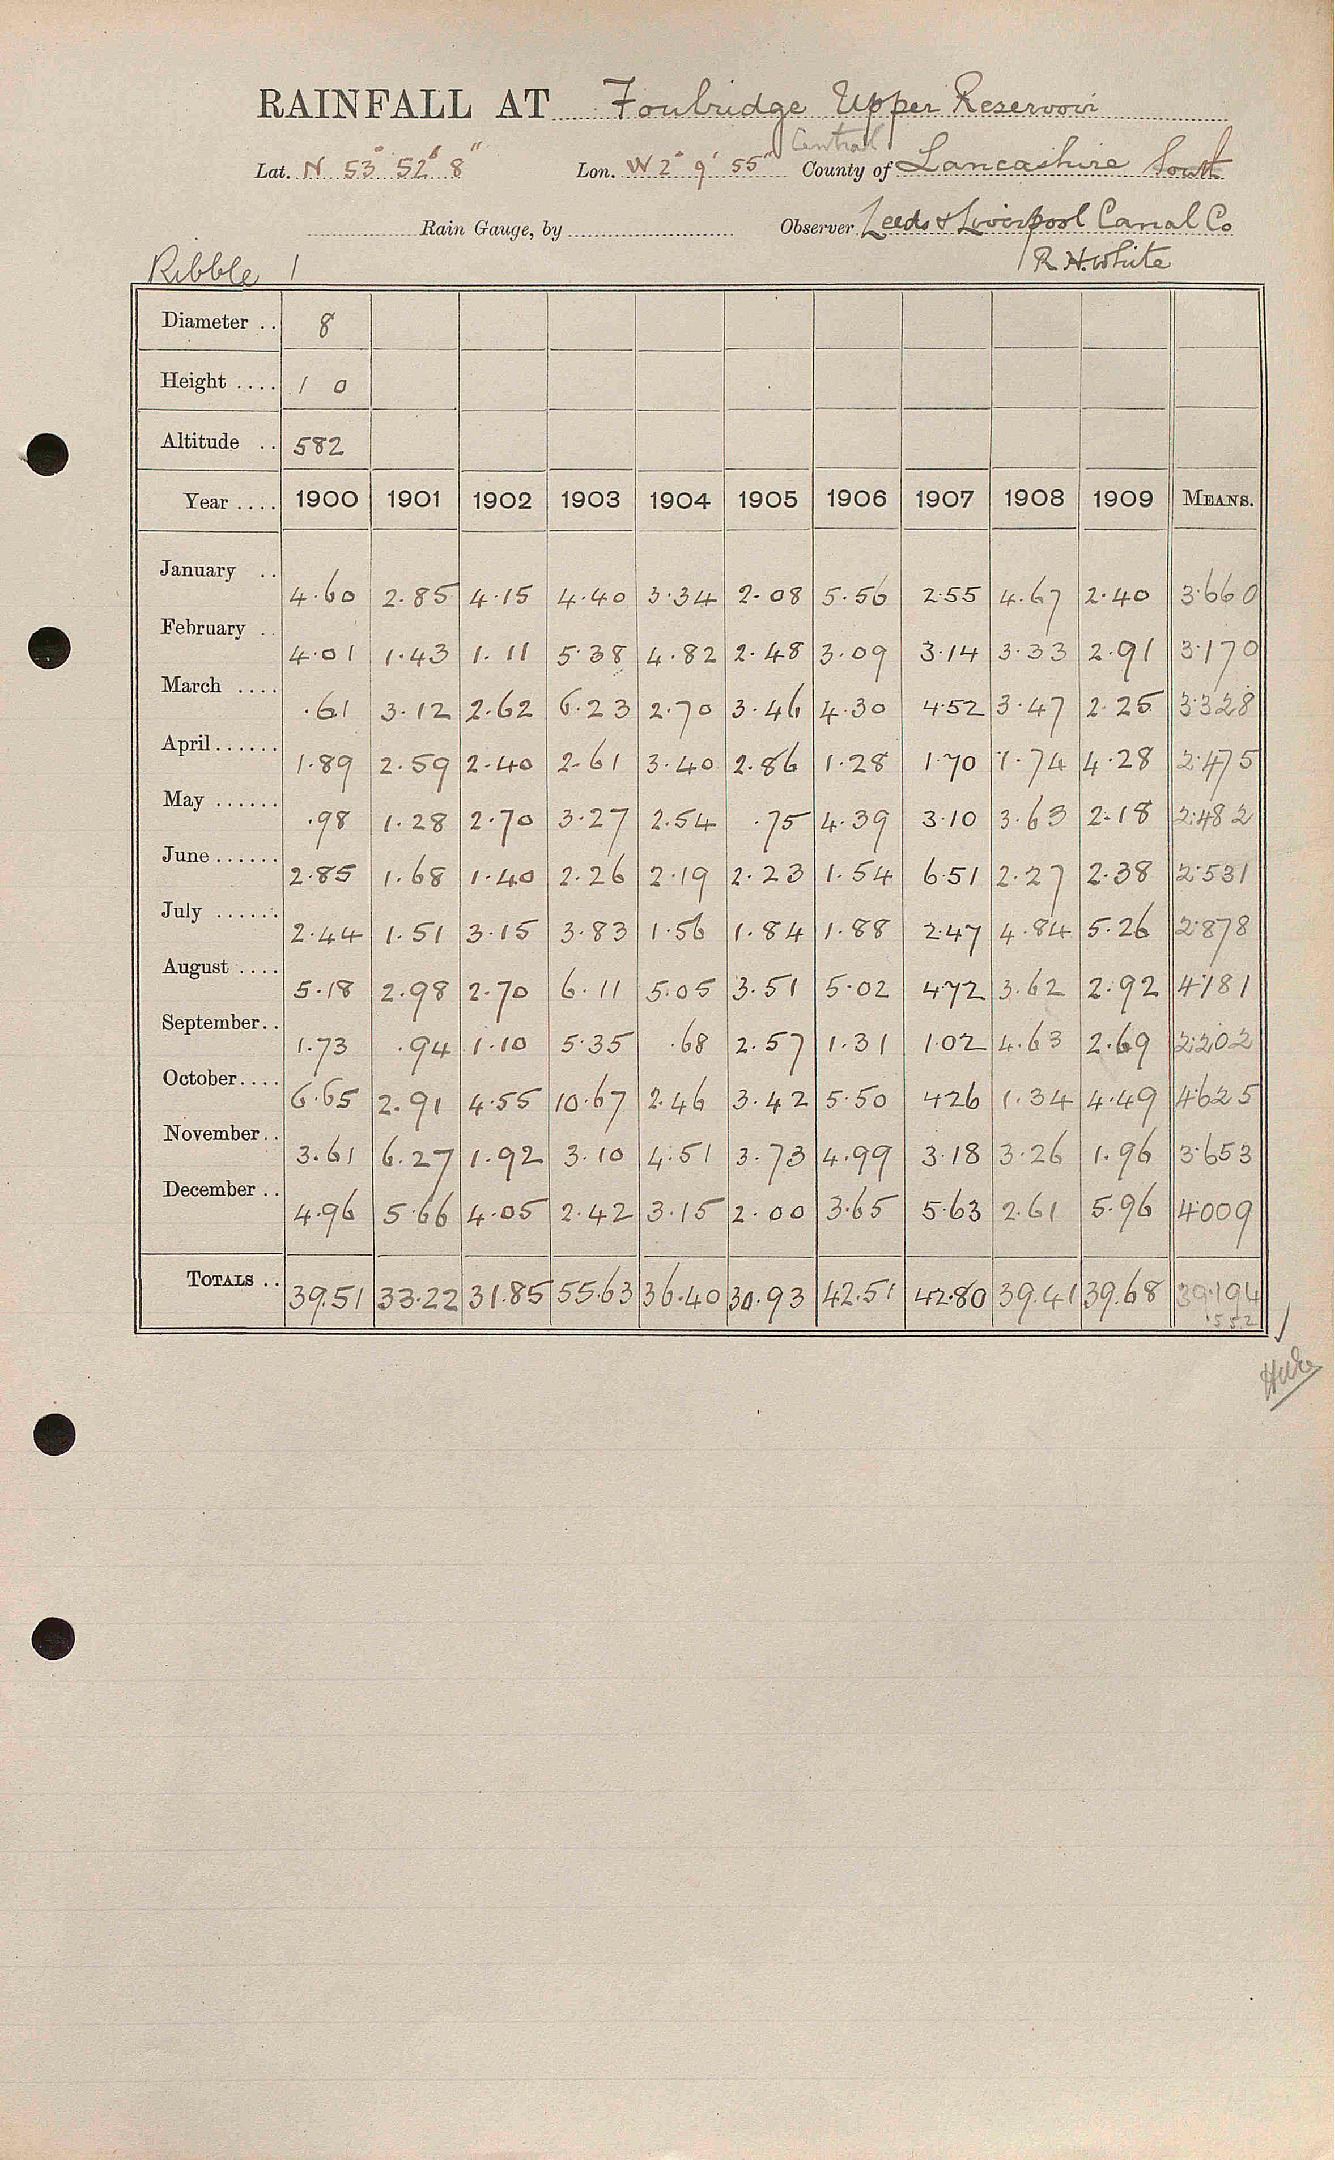 RAINFALL AT Foulridge Upper Reservoir
Central
Lat. N 53° 52' 8" Lon. W 2° 9' 55" County of Lancashire South
Rain Gauge, by Observer Leeds & Liverpool Canal Co
Ribble 1 R H. White
Diameter .. 8
Height .... 1 0
Altitude .. 582
Year .... 1900 1901 1902 1903 1904 1905 1906 1907 1908 1909 MEANS.
January .. 4.60 2.85 4.15 4.40 3.34 2.08 5.56 2.55 4.67 2.40 3.660
February .. 4.01 1.43 1.11 5.38 4.82 2.48 3.09 3.14 3.33 2.91 3.170
March .... .61 3.12 2.62 6.23 2.70 3.46 4.30 4.52 3.47 2.25 3.328
April...... 1.89 2.59 2.40 2.61 3.40 2.86 1.28 1.70 1.74 4.28 2.475
May ...... .98 1.28 2.70 3.27 2.54 .75 4.39 3.10 3.63 2.18 2.482
June...... 2.85 1.68 1.40 2.26 2.19 2.23 1.54 6.51 2.27 2.38 2.531
July ...... 2.44 1.51 3.15 3.83 1.56 1.84 1.88 2.47 4.84 5.26 2.878
August .... 5.18 2.98 2.70 6.11 5.05 3.51 5.02 4.72 3.62 2.92 4.181
September.. 1.73 .94 1.10 5.35 .68 2.57 1.31 1.02 4.63 2.69 2.202
October.... 6.65 2.91 4.55 10.67 2.46 3.42 5.50 4.26 1.34 4.49 4.625
November.. 3.61 6.27 1.92 3.10 4.51 3.73 4.99 3.18 3.26 1.96 3.653
December .. 4.96 5.66 4.05 2.42 3.15 2.00 3.65 5.63 2.61 5.96 4.009
TOTALS .. 39.51 33.22 31.85 55.63 36.40 30.93 42.51 42.80 39.41 39.68 39.194